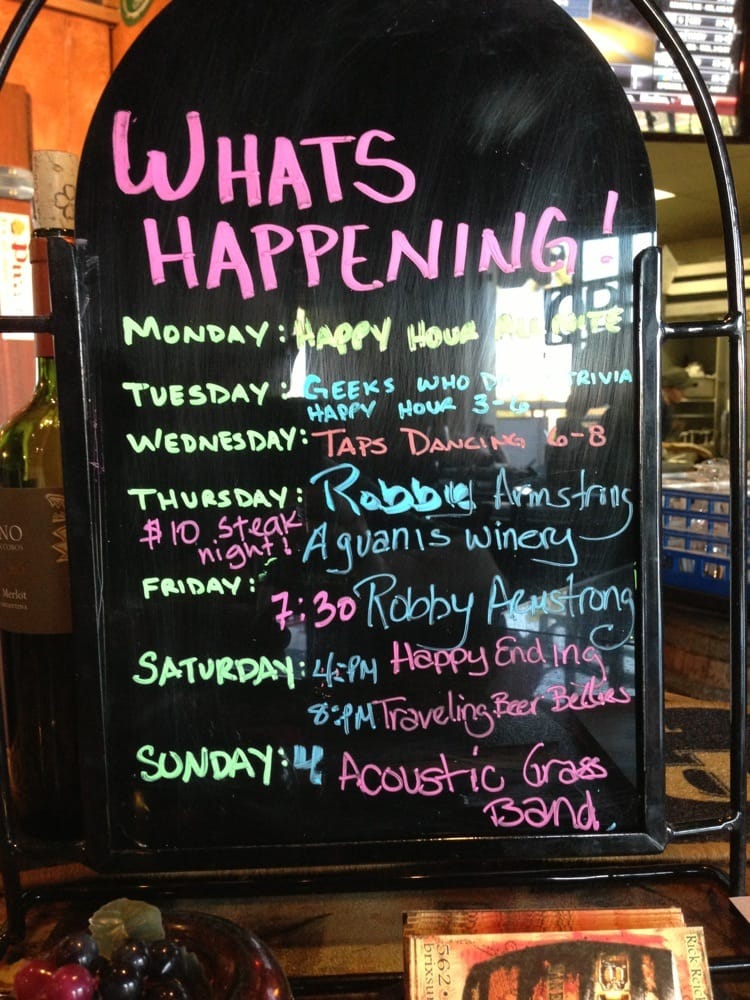 WHATS
HAPPENING!
MONDAY: HAPPY HOUR ALL NITE
TUESDAY: GEEKS WHO TRIVIA
HAPPY HOUR 3-6
WEDNESDAY: TAPS DANCING 6-8
THURSDAY: Robby Armstrong
$10 steak night! Aguanis winery
FRIDAY: 7:30 Robby Armstrong
SATURDAY: 4:PM Happy Ending
8:PM Traveling Beer Bellies
SUNDAY: 4 Acoustic Grass
Band.
NO
Merlot
562
brixsu
Rick Rei